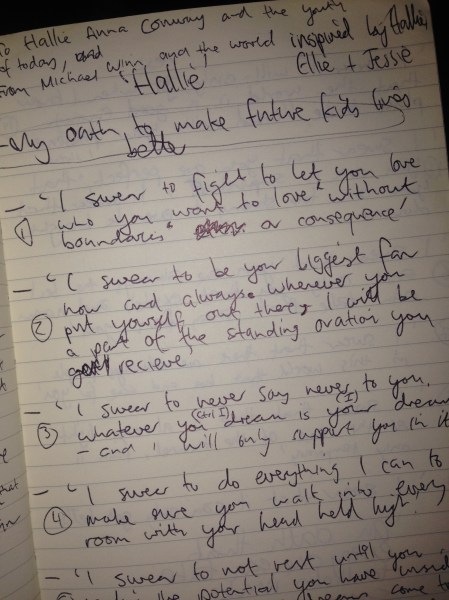 To Hallie Anna Conway and the youth
of today, and
from Michael Winn and the world inspired by Hallie,
'Hallie' Ellie + Jesse
- My oath to make future kids lives
better
- "I swear to fight to let you love
① who you want to love "without
boundaries" or consequence'
- "I swear to be your biggest fan
now and always. Wherever you
② put yourself out there, I will be
a part of the standing ovation you
recieve
- "I swear to never say never to you.
③ whatever you dream is your dream
- and I will only support you in it
- "I swear to do everything I can to
④ make sure you walk into every
room with your head held high.
- "I swear to not rest until you
the potential you have
dreams come to